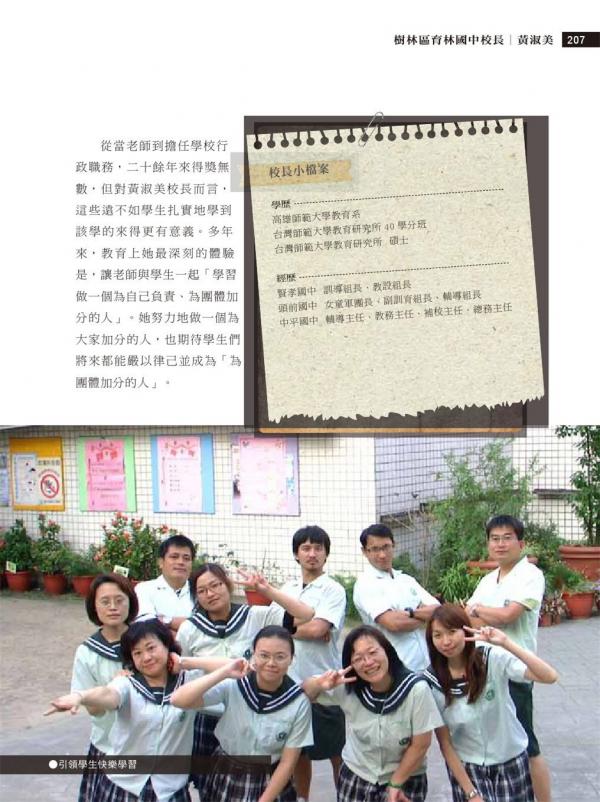 樹林區育林國中校長｜黃淑美 207
從當老師到擔任學校行
政職務，二十餘年來得獎無
數，但對黃淑美校長而言，
這些遠不如學生扎實地學到
該學的來得更有意義。多年
來，教育上她最深刻的體驗
是，讓老師與學生一起「學習
做一個為自己負責、為團體加
分的人」。她努力地做一個為
大家加分的人，也期待學生們
將來都能嚴以律己並成為「為
團體加分的人」。
校長小檔案
學歷
高雄師範大學教育系
台灣師範大學教育研究所 40 學分班
台灣師範大學教育研究所 碩士
經歷
賢孝國中 訓導組長、教設組長
頭前國中 女童軍團長、副訓育組長、輔導組長
中平國中 輔導主任、教務主任、補校主任、總務主任
●引領學生快樂學習